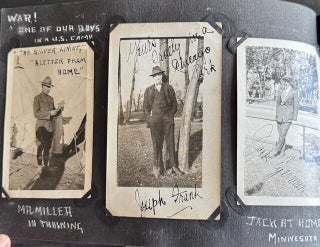 WAR!
"ONE OF OUR BOYS
IN A U.S. CAMP
"THE SILVER LINING,"
"A LETTER FROM
HOME"
MR. MILLER
IN TRAINING
Yours
in a
Chicago
Park
Joseph Frank
JACK AT HOME
MINNESOTA